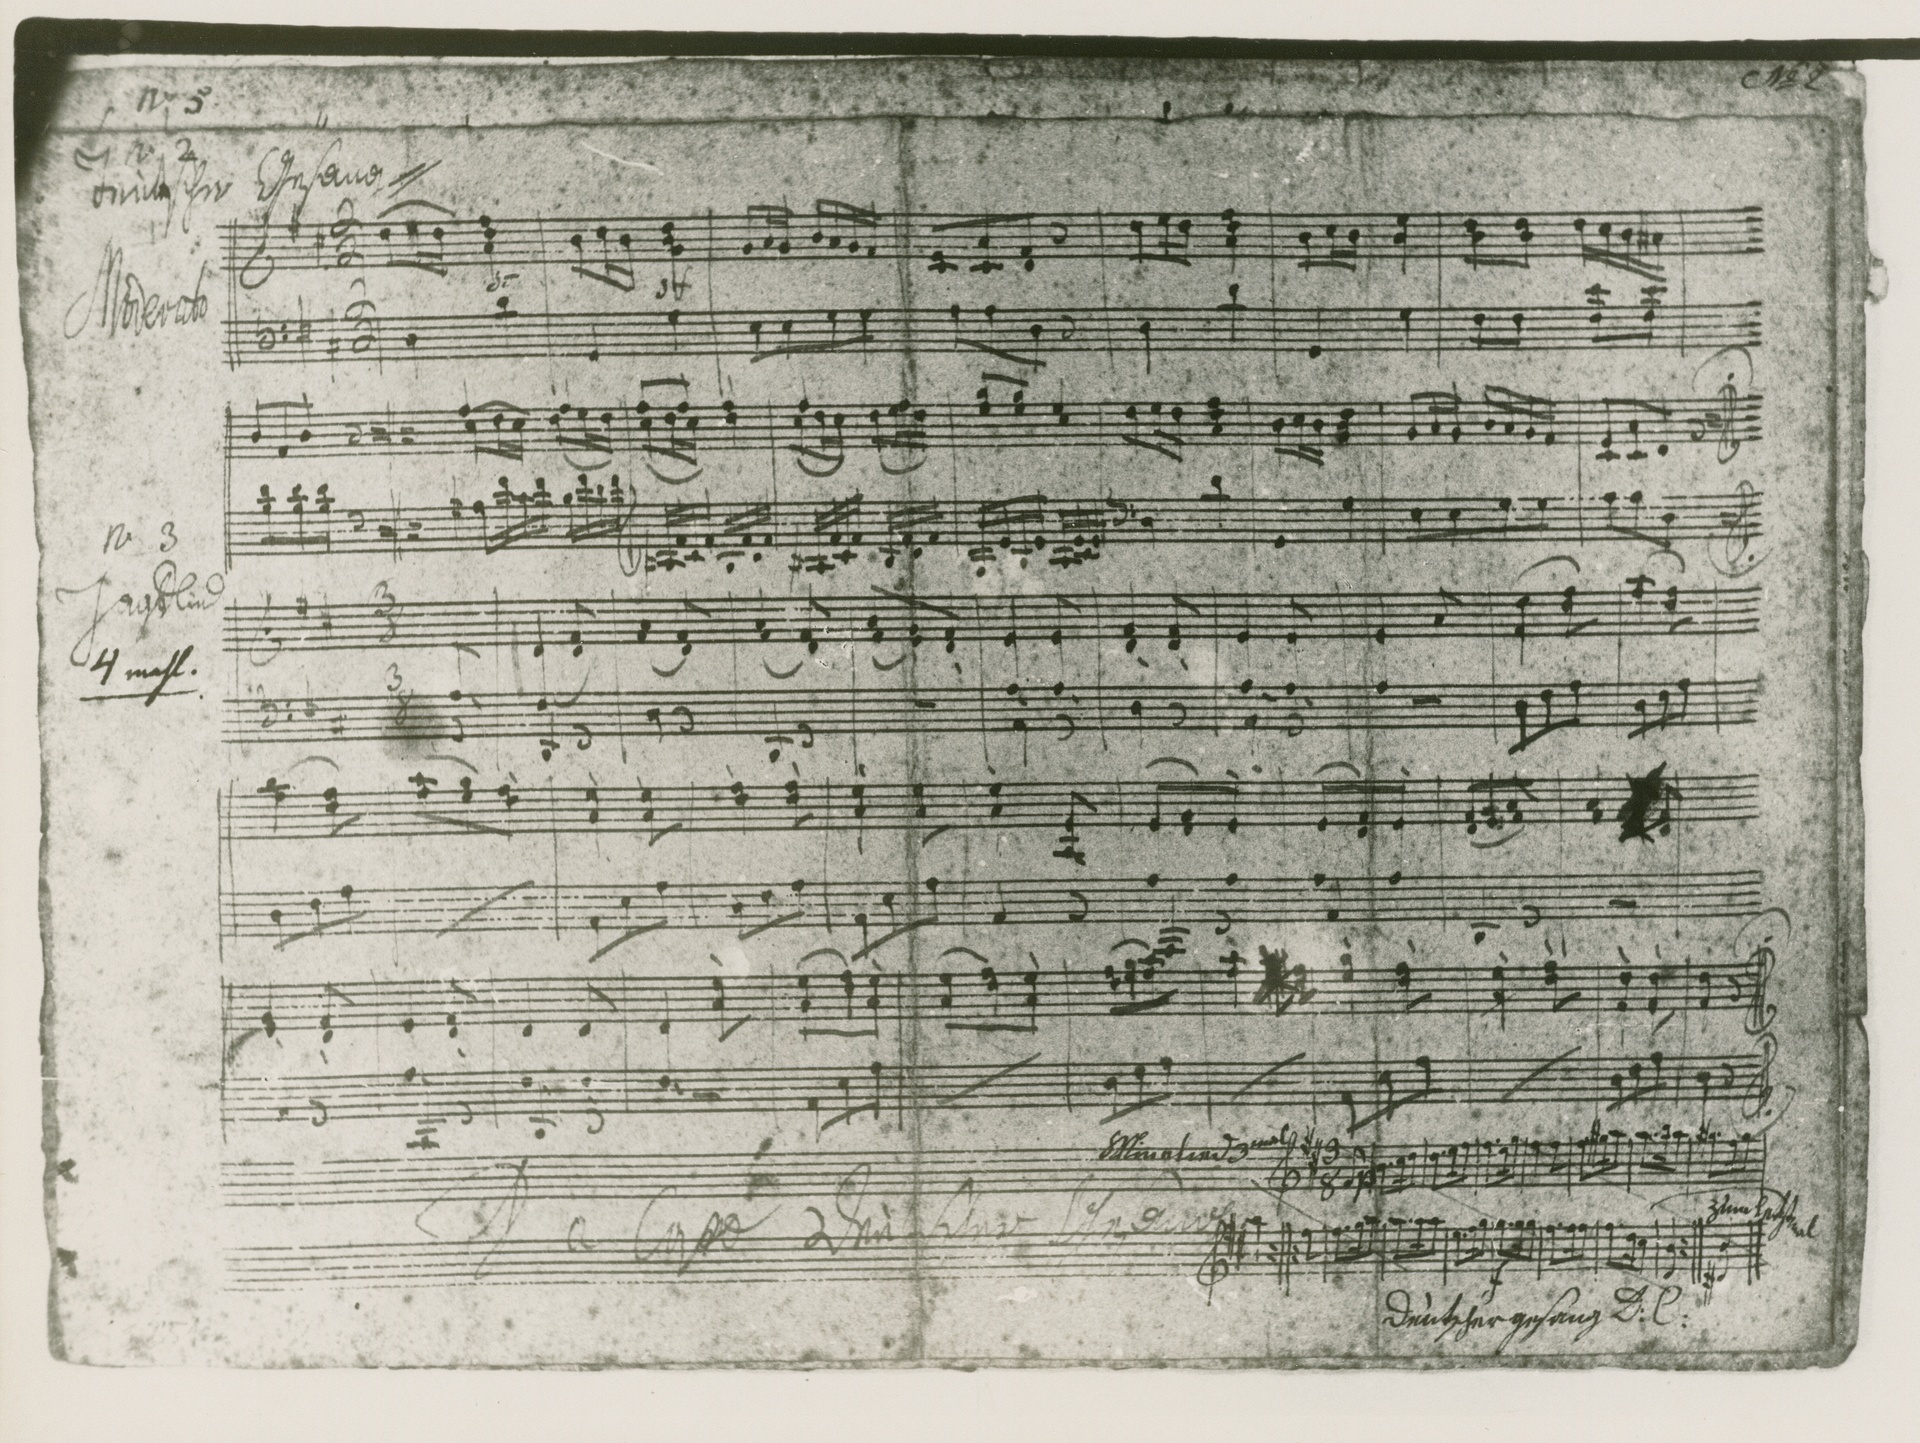 No 2
n. 5
n. 2
Deutscher Gesang
Moderato
n. 3
Jagdlied
4 mahl.
Minelied 3 mal
Da Capo Deutscher
zum letzten mal
Deutscher gesang D: C: